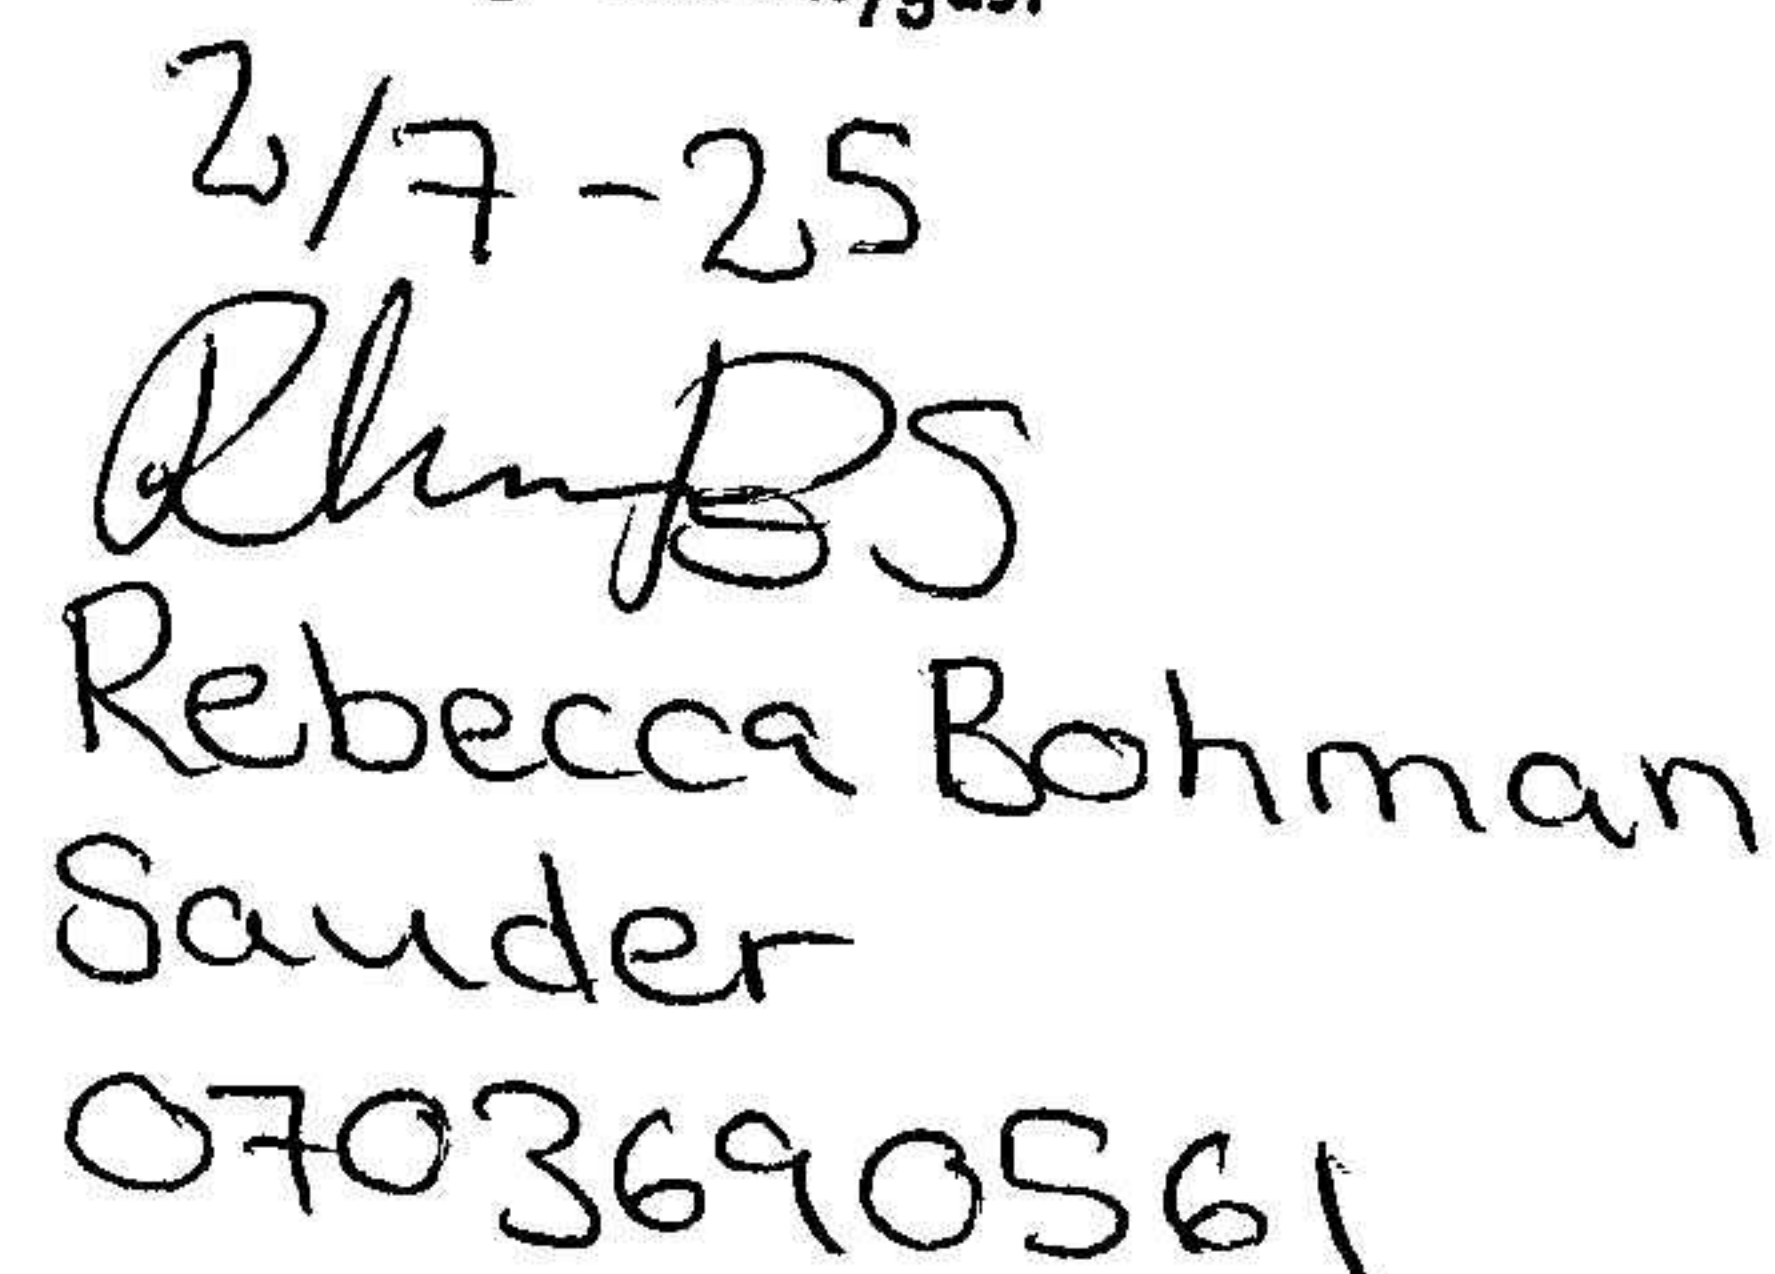 2/7-25
Rebecca Bohman
Sauder
0703690561